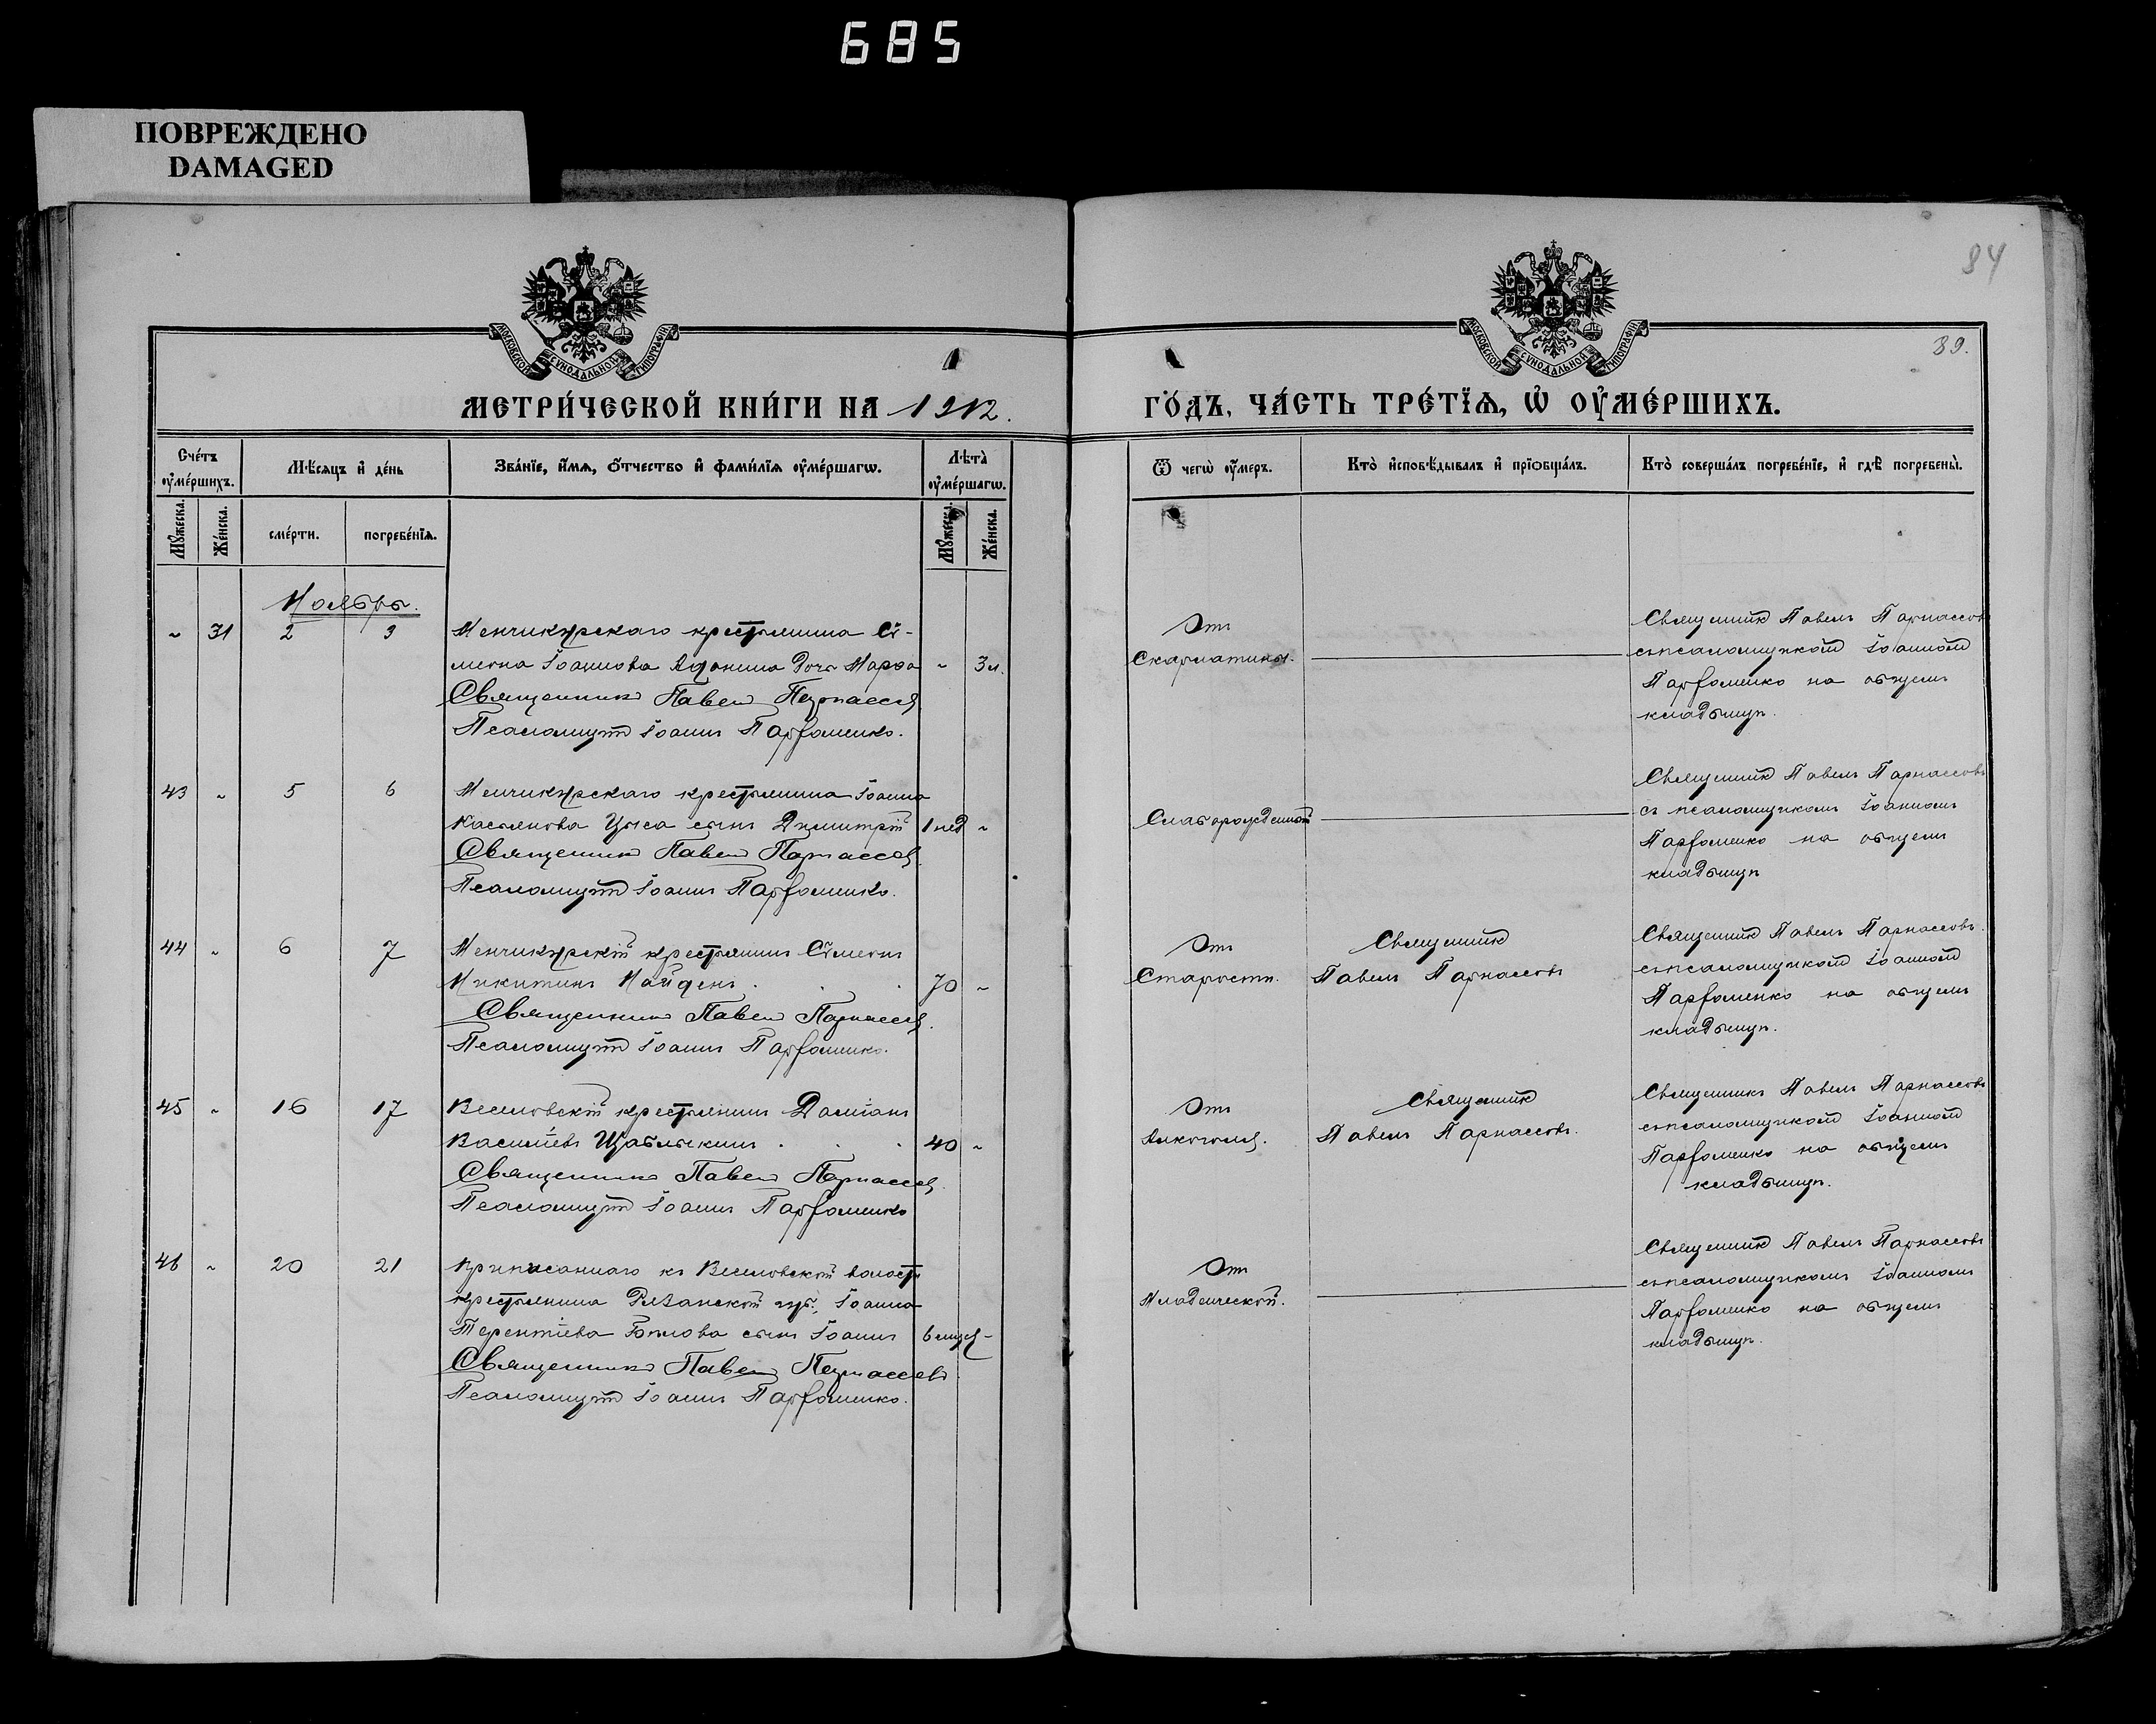 685
ПОВРЕЖДЕНО
DAMAGED
84
89.
МОСКОВСКОЙ СѴНОДАЛЬНОЙ ТИПОГРАФІИ
МОСКОВСКОЙ СѴНОДАЛЬНОЙ ТИПОГРАФІИ
МЕТРИ́ЧЕСКОЙ КНИ́ГИ НА 1912.
ГО́ДЪ, ЧА́СТЬ ТРЕ́ТЇѦ, Ѡ҆ ОУ҆МЕ́РШИХЪ.
Сче́тъ оу҆ме́ршихъ.
Мѣ́сяцъ и҆ де́нь
Зва́нїе, и҆́мя, ѻ҆́тчество и҆ фами́лїя оу҆ме́ршагѡ.
Лѣта̀ оу҆ме́ршагѡ.
Ѿ чегѡ̀ оу҆́меръ.
Кто̀ и҆сповѣ́дывалъ и҆ прїѻбща́лъ.
Кто̀ соверша́лъ погребе́нїе, и҆ гдѣ̀ погребены̀.
Мꙋ́жеска.
Же́нска.
сме́рти.
погребе́нїя.
Мꙋ́жеска.
Же́нска.
Ноябрь.
" 31 2 3 Менчикурскаго крестьянина Си-
меона Іоаннова дочь Марфа " 3 л.
Священникъ Павелъ Парнассовъ
Псаломщикъ Іоаннъ Парфоменко.
Отъ
Скарлатины.
Священникъ Павелъ Парнассовъ
съ псаломщикомъ Іоанномъ
Парфоменко на общемъ
кладбищѣ.
43 " 5 6 Менчикурскаго крестьянина Іоанна
Касьянова Цыса сынъ Димитрій 1 нед "
Священникъ Павелъ Парнассовъ
Псаломщикъ Іоаннъ Парфоменко.
Слаборожденный
Священникъ Павелъ Парнассовъ
съ псаломщикомъ Іоанномъ
Парфоменко на общемъ
кладбищѣ
44 " 6 7 Менчикурскій крестьянинъ Симеонъ
Никитинъ Найденъ . . . 70 "
Священникъ Павелъ Парнассовъ.
Псаломщикъ Іоаннъ Парфоменко.
Отъ
Старости.
Священникъ
Павелъ Парнассовъ
Священникъ Павелъ Парнассовъ.
съ псаломщикомъ Іоанномъ
Парфоменко на общемъ
кладбищѣ.
45 " 16 17 Веселовскій крестьянинъ Даміанъ
Василіевъ . . . 40 "
Священникъ Павелъ Парнассовъ.
Псаломщикъ Іоаннъ Парфоменко
Отъ
Алкоголя.
Священникъ
Павелъ Парнассовъ.
Священникъ Павелъ Парнассовъ
съ псаломщикомъ Іоанномъ
Парфоменко на общемъ
кладбищѣ.
46 " 20 21 Приписаннаго къ Веселовской волости
крестьянина Рязанской губ. Іоанна
Терентіева сынъ Іоаннъ 6 мцев "
Священникъ Павелъ Парнассовъ.
Псаломщикъ Іоаннъ Парфоменко.
Отъ
Младенческой.
Священникъ Павелъ Парнассовъ
съ псаломщикомъ Іоанномъ
Парфоменко на общемъ
кладбищѣ.